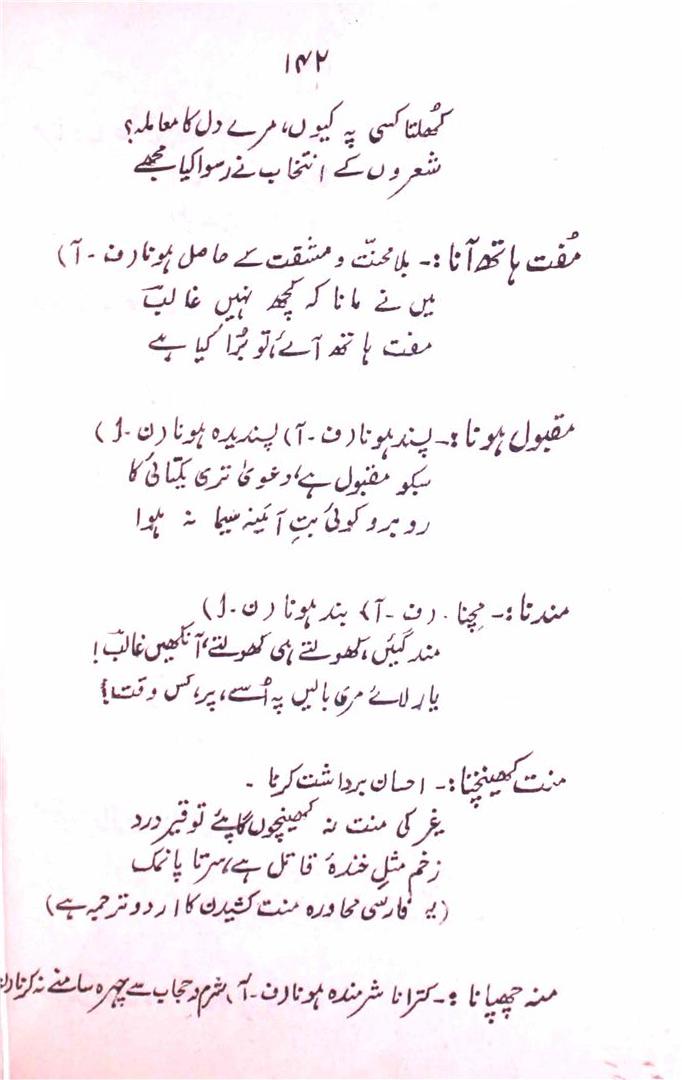 ۱۴۲
کُھلتا کسی پہ کیوں، مرے دل کا معاملہ؟
شعروں کے انتخاب نے رسوا کیا مجھے
مُفت ہاتھ آنا :۔ بلا محنتّ و مشقت کے حاصل ہونا (ف ۔ آ)
میں نے مانا کہ کچھ نہیں غالبؔ
مفت ہاتھ آئے، تو بُرا کیا ہے
مقبول ہونا :۔ پسند ہونا (ف ۔ آ) پسندیدہ ہونا (ن ۔ ل)
سبکو مقبول ہے، دعویٰ تری یکتائی کا
روبرو کوئی بتِ آئینہ سیما نہ ہوا
مندنا :۔ مِچنا ۔ (ف ۔ آ) بند ہونا (ن ۔ ل)
مند گئیں، کھولتے ہی کھولتے، آنکھیں غالبؔ!
یار لائے مری بالیں پہ اُسے، پر، کس وقت؟!
منت کھینچنا :۔ احسان برداشت کرنا ۔
غیر کی منت نہ کھینچوں گا پئے توقیرِ درد
زخم مثلِ خندۂ قاتل ہے، سرتا پا نمک
(یہ فارسی محاورہ منت کشیدن کا اردو ترجمہ ہے)
منہ چھپانا :۔ کترانا شرمندہ ہونا (ف ۔ آ) شرم و حجاب سے چہرہ سامنے نہ کرنا